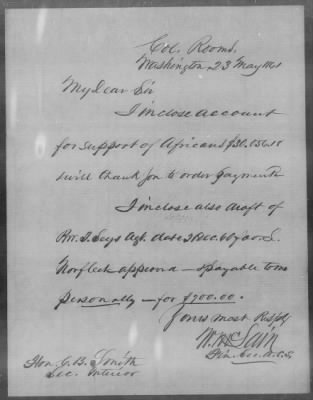 Col. Rooms,
Washington, 23 May 1861
My Dear Sir
I inclose account
for support of Africans
& will thank you to order payment
I inclose also draft of
Jno. Seys Agt. date
approved — & payable to me
personally — for $700.00.
Yours most Respy
W. McLain
Fin. Sec. A.C.S.
Hon. C.B. Smith
Sec. Interior